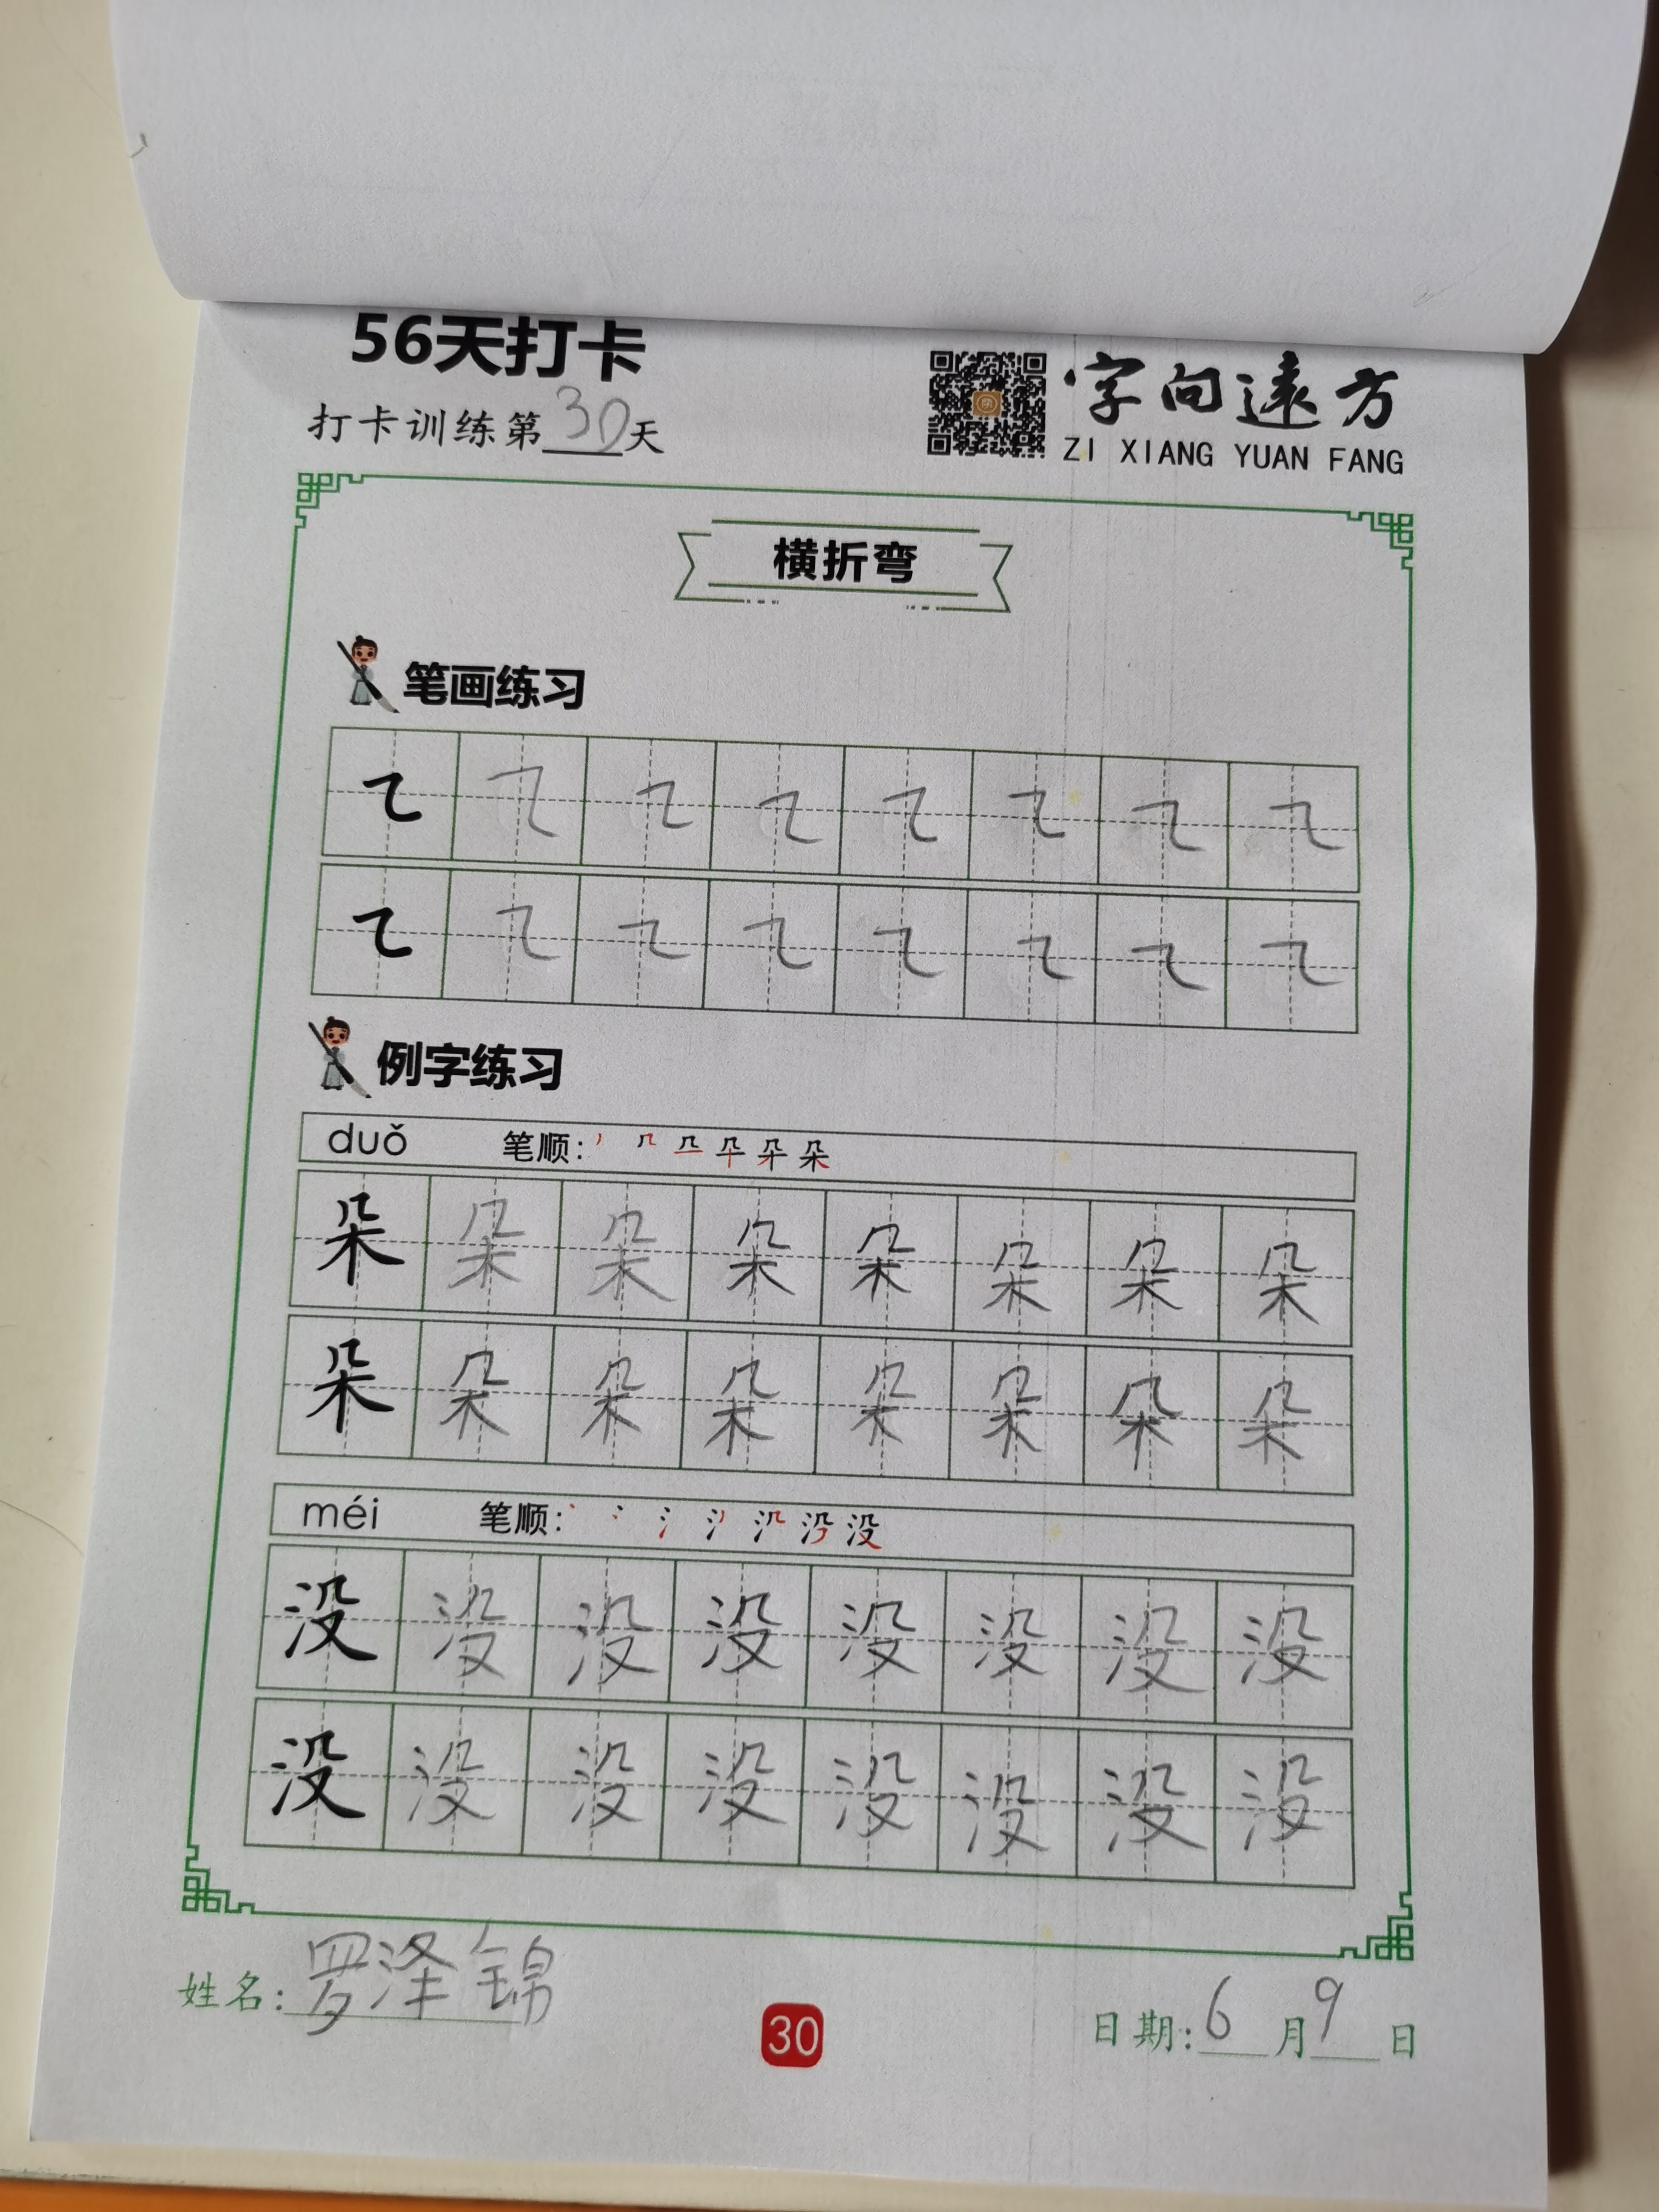 56天打卡
打卡训练第30天
字向遠方
ZI XIANG YUAN FANG
横折弯
笔画练习
例字练习
duǒ 笔顺: 朵
朵 朵 朵 朵 朵 朵 朵 朵
朵 朵 朵 朵 朵 朵 朵 朵
méi 笔顺: 没
没 没 没 没 没 没 没 没
没 没 没 没 没 没 没 没
姓名: 罗泽锦
30
日期: 6月9日